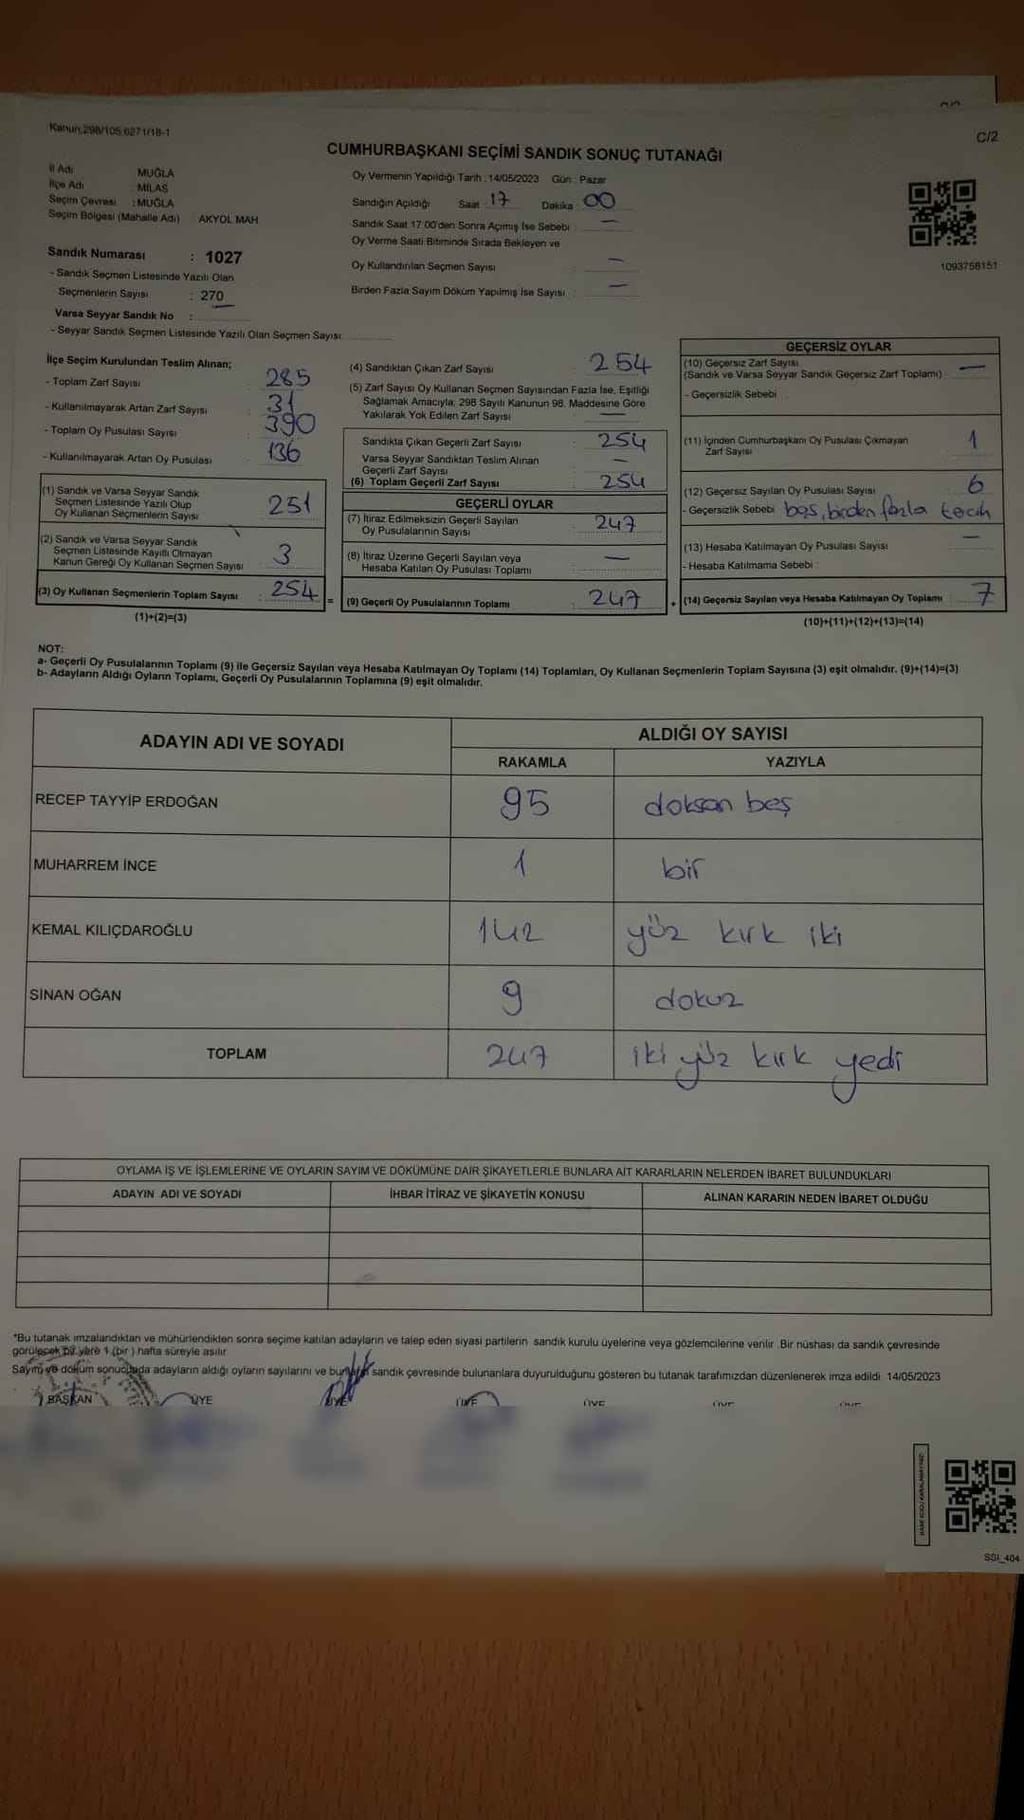 Kanun:298/105,6271/18-1
C/2
CUMHURBAŞKANI SEÇİMİ SANDIK SONUÇ TUTANAĞI
İl Adı : MUĞLA
İlçe Adı : MİLAS
Seçim Çevresi : MUĞLA
Seçim Bölgesi (Mahalle Adı) AKYOL MAH
Sandık Numarası : 1027
- Sandık Seçmen Listesinde Yazılı Olan
Seçmenlerin Sayısı : 270
Varsa Seyyar Sandık No :
- Seyyar Sandık Seçmen Listesinde Yazılı Olan Seçmen Sayısı
Oy Vermenin Yapıldığı Tarih : 14/05/2023 Gün : Pazar
Sandığın Açıldığı Saat : 17 Dakika : 00
Sandık Saat 17:00'den Sonra Açımış İse Sebebi : —
Oy Verme Saati Bitiminde Sırada Bekleyen ve
Oy Kullandırılan Seçmen Sayısı : —
Birden Fazla Sayım Döküm Yapılmış İse Sayısı : —
1093758151
İlçe Seçim Kurulundan Teslim Alınan;
- Toplam Zarf Sayısı : 285
- Kullanılmayarak Artan Zarf Sayısı : 31
- Toplam Oy Pusulası Sayısı : 390
- Kullanılmayarak Artan Oy Pusulası : 136
(1) Sandık ve Varsa Seyyar Sandık
Seçmen Listesinde Yazılı Olup
Oy Kullanan Seçmenlerin Sayısı : 251
(2) Sandık ve Varsa Seyyar Sandık
Seçmen Listesinde Kayıtlı Olmayan
Kanun Gereği Oy Kullanan Seçmen Sayısı : 3
(3) Oy Kullanan Seçmenlerin Toplam Sayısı : 254 =
(1)+(2)=(3)
(4) Sandıktan Çıkan Zarf Sayısı : 254
(5) Zarf Sayısı Oy Kullanan Seçmen Sayısından Fazla İse, Eşitliği
Sağlamak Amacıyla; 298 Sayılı Kanunun 98. Maddesine Göre
Yakılarak Yok Edilen Zarf Sayısı : —
Sandıkta Çıkan Geçerli Zarf Sayısı : 254
Varsa Seyyar Sandıktan Teslim Alınan
Geçerli Zarf Sayısı : —
(6) Toplam Geçerli Zarf Sayısı : 254
GEÇERLİ OYLAR
(7) İtiraz Edilmeksizin Geçerli Sayılan
Oy Pusulalarının Sayısı : 247
(8) İtiraz Üzerine Geçerli Sayılan veya
Hesaba Katılan Oy Pusulası Toplamı : —
(9) Geçerli Oy Pusulalarının Toplamı : 247 +
GEÇERSİZ OYLAR
(10) Geçersiz Zarf Sayısı
(Sandık ve Varsa Seyyar Sandık Geçersiz Zarf Toplamı) : —
- Geçersizlik Sebebi :
(11) İçinden Cumhurbaşkanı Oy Pusulası Çıkmayan
Zarf Sayısı : 1
(12) Geçersiz Sayılan Oy Pusulası Sayısı : 6
- Geçersizlik Sebebi : boş, birden fazla tercih
(13) Hesaba Katılmayan Oy Pusulası Sayısı : —
- Hesaba Katılmama Sebebi :
(14) Geçersiz Sayılan veya Hesaba Katılmayan Oy Toplamı : 7
(10)+(11)+(12)+(13)=(14)
NOT:
a- Geçerli Oy Pusulalarının Toplamı (9) ile Geçersiz Sayılan veya Hesaba Katılmayan Oy Toplamı (14) Toplamları, Oy Kullanan Seçmenlerin Toplam Sayısına (3) eşit olmalıdır. (9)+(14)=(3)
b- Adayların Aldığı Oyların Toplamı, Geçerli Oy Pusulalarının Toplamına (9) eşit olmalıdır.
ADAYIN ADI VE SOYADI ALDIĞI OY SAYISI
RAKAMLA YAZIYLA
RECEP TAYYİP ERDOĞAN 95 doksan beş
MUHARREM İNCE 1 bir
KEMAL KILIÇDAROĞLU 142 yüz kırk iki
SİNAN OĞAN 9 dokuz
TOPLAM 247 iki yüz kırk yedi
OYLAMA İŞ VE İŞLEMLERİNE VE OYLARIN SAYIM VE DÖKÜMÜNE DAİR ŞİKAYETLERLE BUNLARA AİT KARARLARIN NELERDEN İBARET BULUNDUKLARI
ADAYIN ADI VE SOYADI İHBAR İTİRAZ VE ŞİKAYETİN KONUSU ALINAN KARARIN NEDEN İBARET OLDUĞU
*Bu tutanak imzalandıktan ve mühürlendikten sonra seçime katılan adayların ve talep eden siyasi partilerin sandık kurulu üyelerine veya gözlemcilerine verilir. Bir nüshası da sandık çevresinde
görülecek bir yere 1 (bir) hafta süreyle asılır.
Sayım ve döküm sonucunda adayların aldığı oyların sayılarını ve bunların sandık çevresinde bulunanlara duyurulduğunu gösteren bu tutanak tarafımızdan düzenlenerek imza edildi. 14/05/2023
BAŞKAN ÜYE ÜYE ÜYE ÜYE ÜYE ÜYE
SSI_404